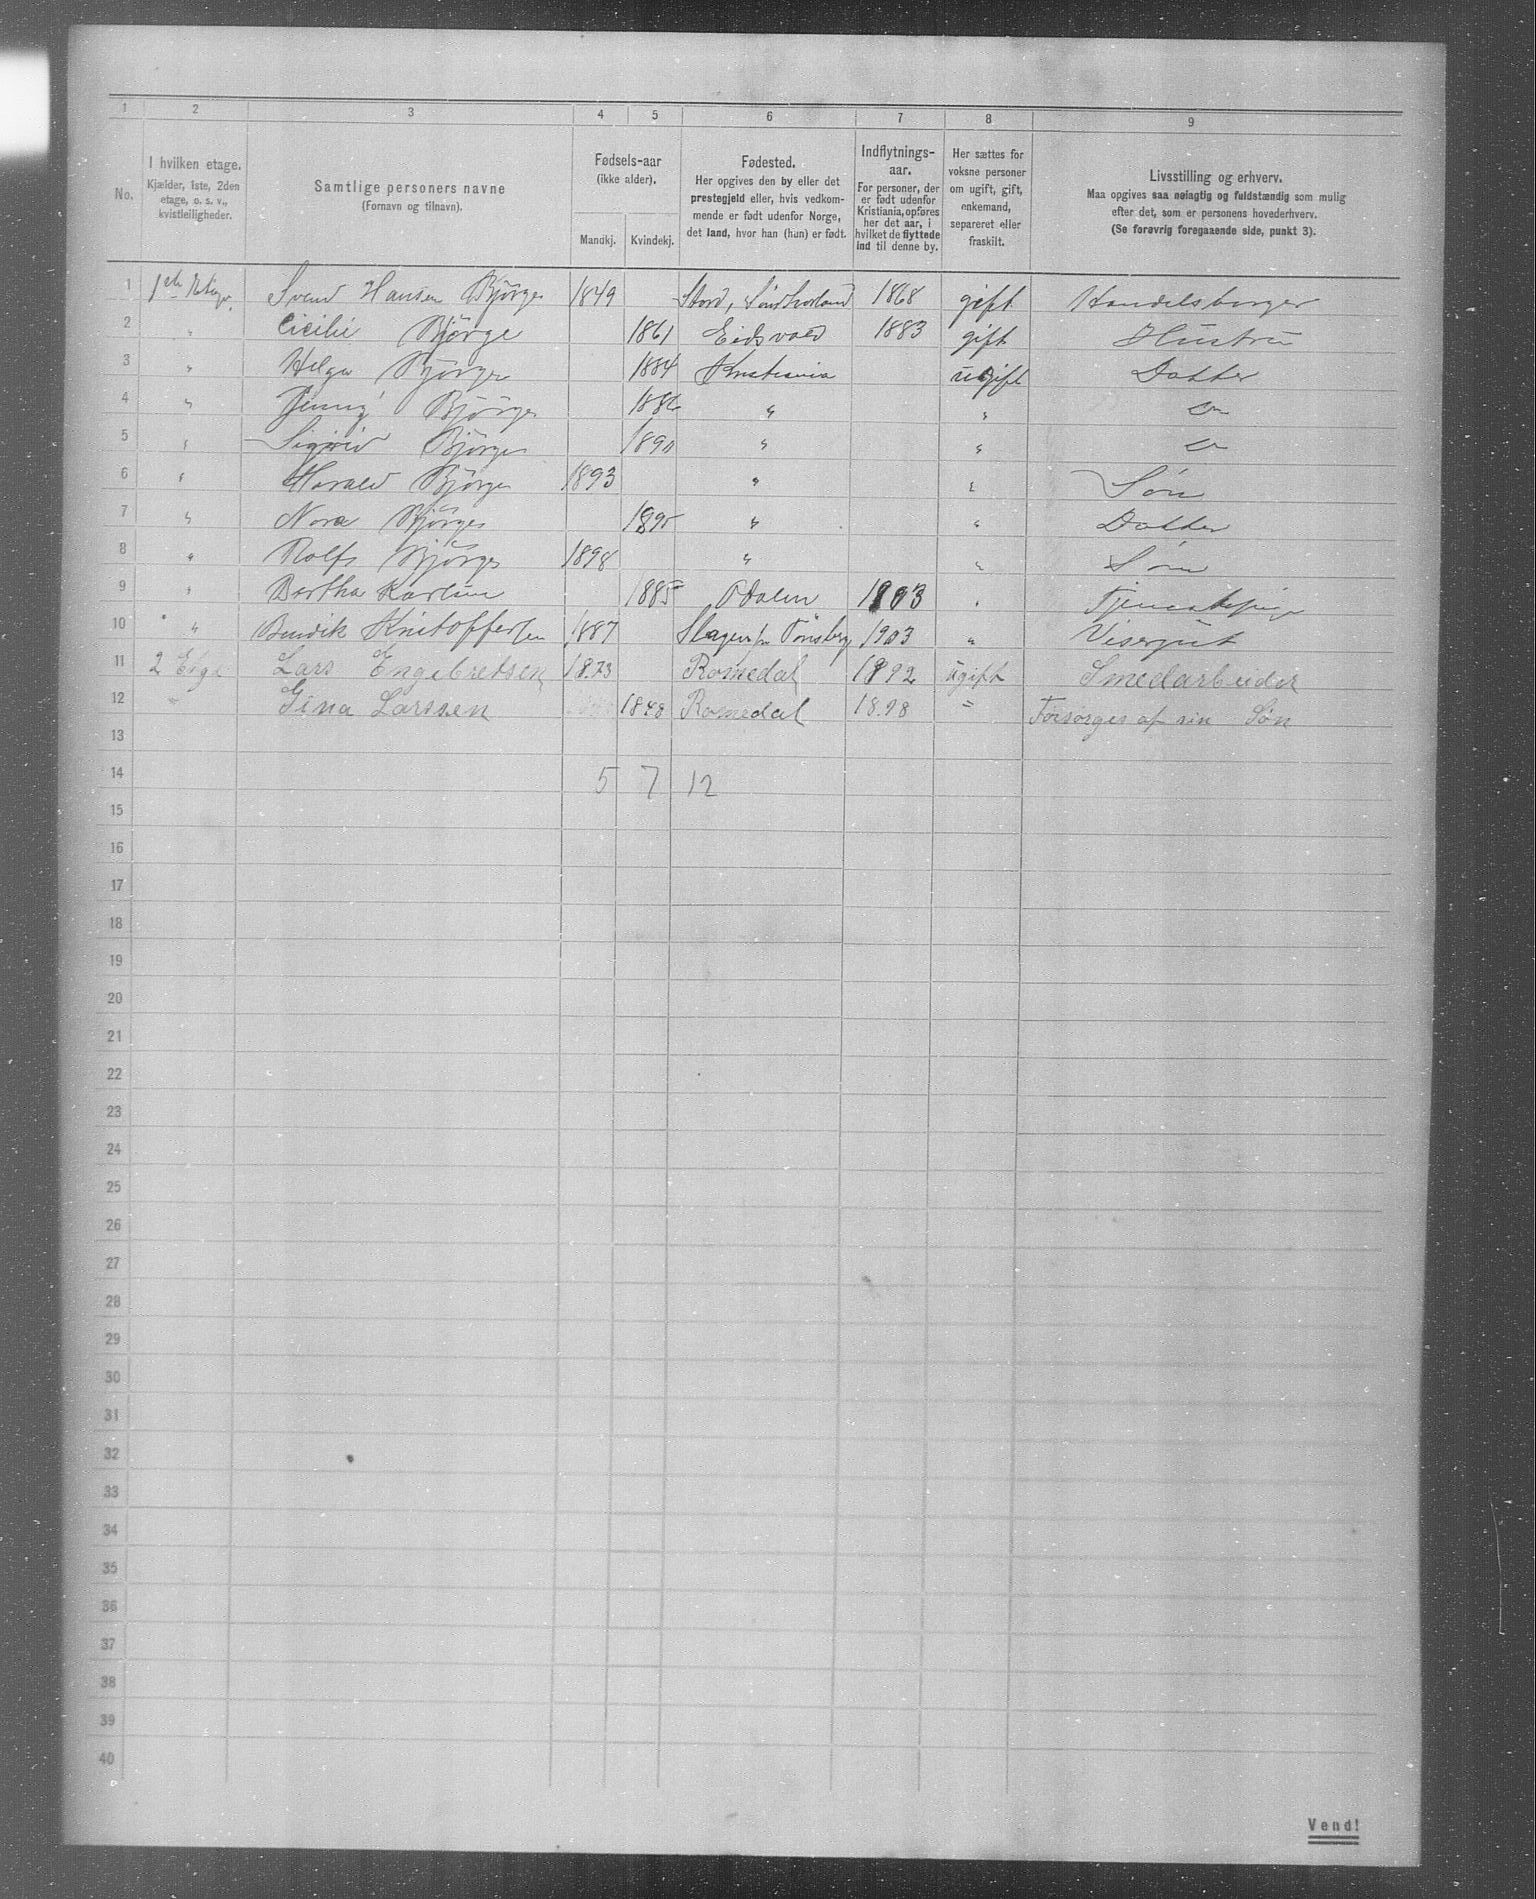 1 2 3 4 5 6 7 8 9
No. I hvilken etage. Kjælder, 1ste, 2den etage, o. s. v., kvistleiligheder. Samtlige personers navne (Fornavn og tilnavn). Fødsels-aar (ikke alder). Mandkj. Kvindekj. Fødested. Her opgives den by eller det prestegjeld eller, hvis vedkommende er født udenfor Norge, det land, hvor han (hun) er født. Indflytnings-aar. For personer, der er født udenfor Kristiania, opføres her det aar, i hvilket de flyttede ind til denne by. Her sættes for voksne personer om ugift, gift, enkemand, separeret eller fraskilt. Livsstilling og erhverv. Maa opgives saa nøiagtig og fuldstændig som mulig efter det, som er personens hovederhverv. (Se forøvrig foregaaende side, punkt 3).
1 1ste Etage Svend Hansen Bjørge 1849 Stord, Søndhorland 1868 gift Handelsborger
2 " Cicilie Bjørge 1861 Eidsvold 1883 gift Hustru
3 " Helga Bjørge 1884 Kristiania ugift Datter
4 " Jenny Bjørge 1886 " " "
5 " Sigrid Bjørge 1890 " " "
6 " Harald Bjørge 1893 " " Søn
7 " Nora Bjørge 1895 " " Datter
8 " Rolf Bjørge 1898 " " Søn
9 " Bertha Karlsen 1885 Odalen 1903 " Tjenestepige
10 " Bendik Kristoffersen 1887 Slagen pr Tønsberg 1903 " Visergut
11 2 Etge Lars Engebretsen 1873 Romedal 1892 ugift Smedarbeider
12 " Gina Larssen 1848 Romedal 1898 " Forsørges af sin Søn
13
14 5 7 12
15
16
17
18
19
20
21
22
23
24
25
26
27
28
29
30
31
32
33
34
35
36
37
38
39
40
Vend!